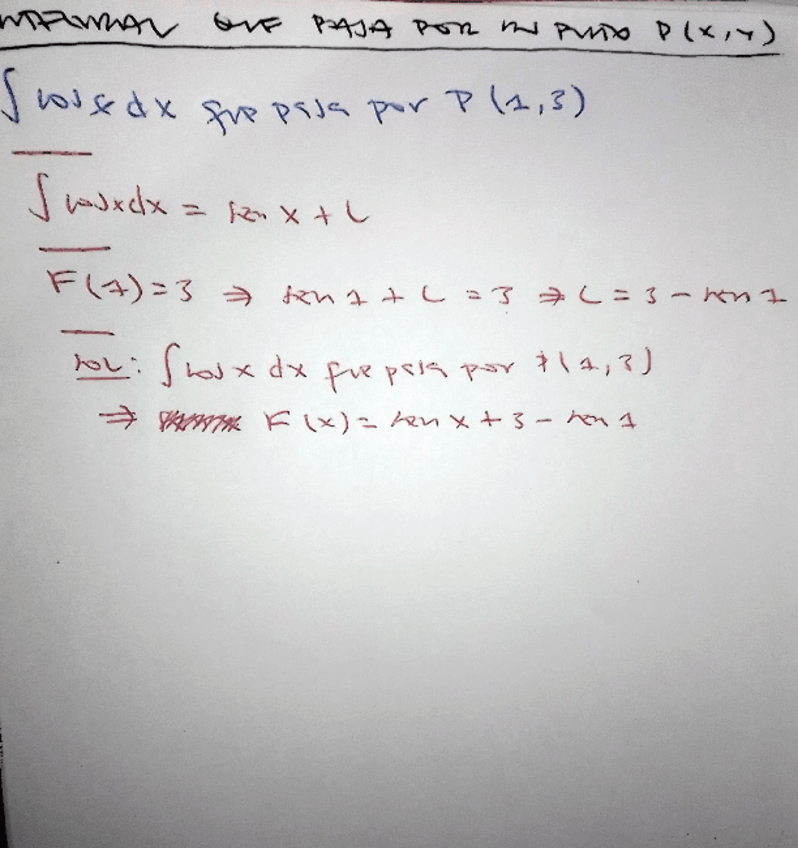 INTEGRAL QUE PASA POR UN PUNTO P(X,Y)
∫ cos x dx que pasa por P(1,3)
∫ cos x dx = sen x + C
F(1)=3 ⇒ sen 1 + C = 3 ⇒ C = 3 - sen 1
SOL: ∫ cos x dx que pasa por P(1,3)
⇒ F(x) = sen x + 3 - sen 1